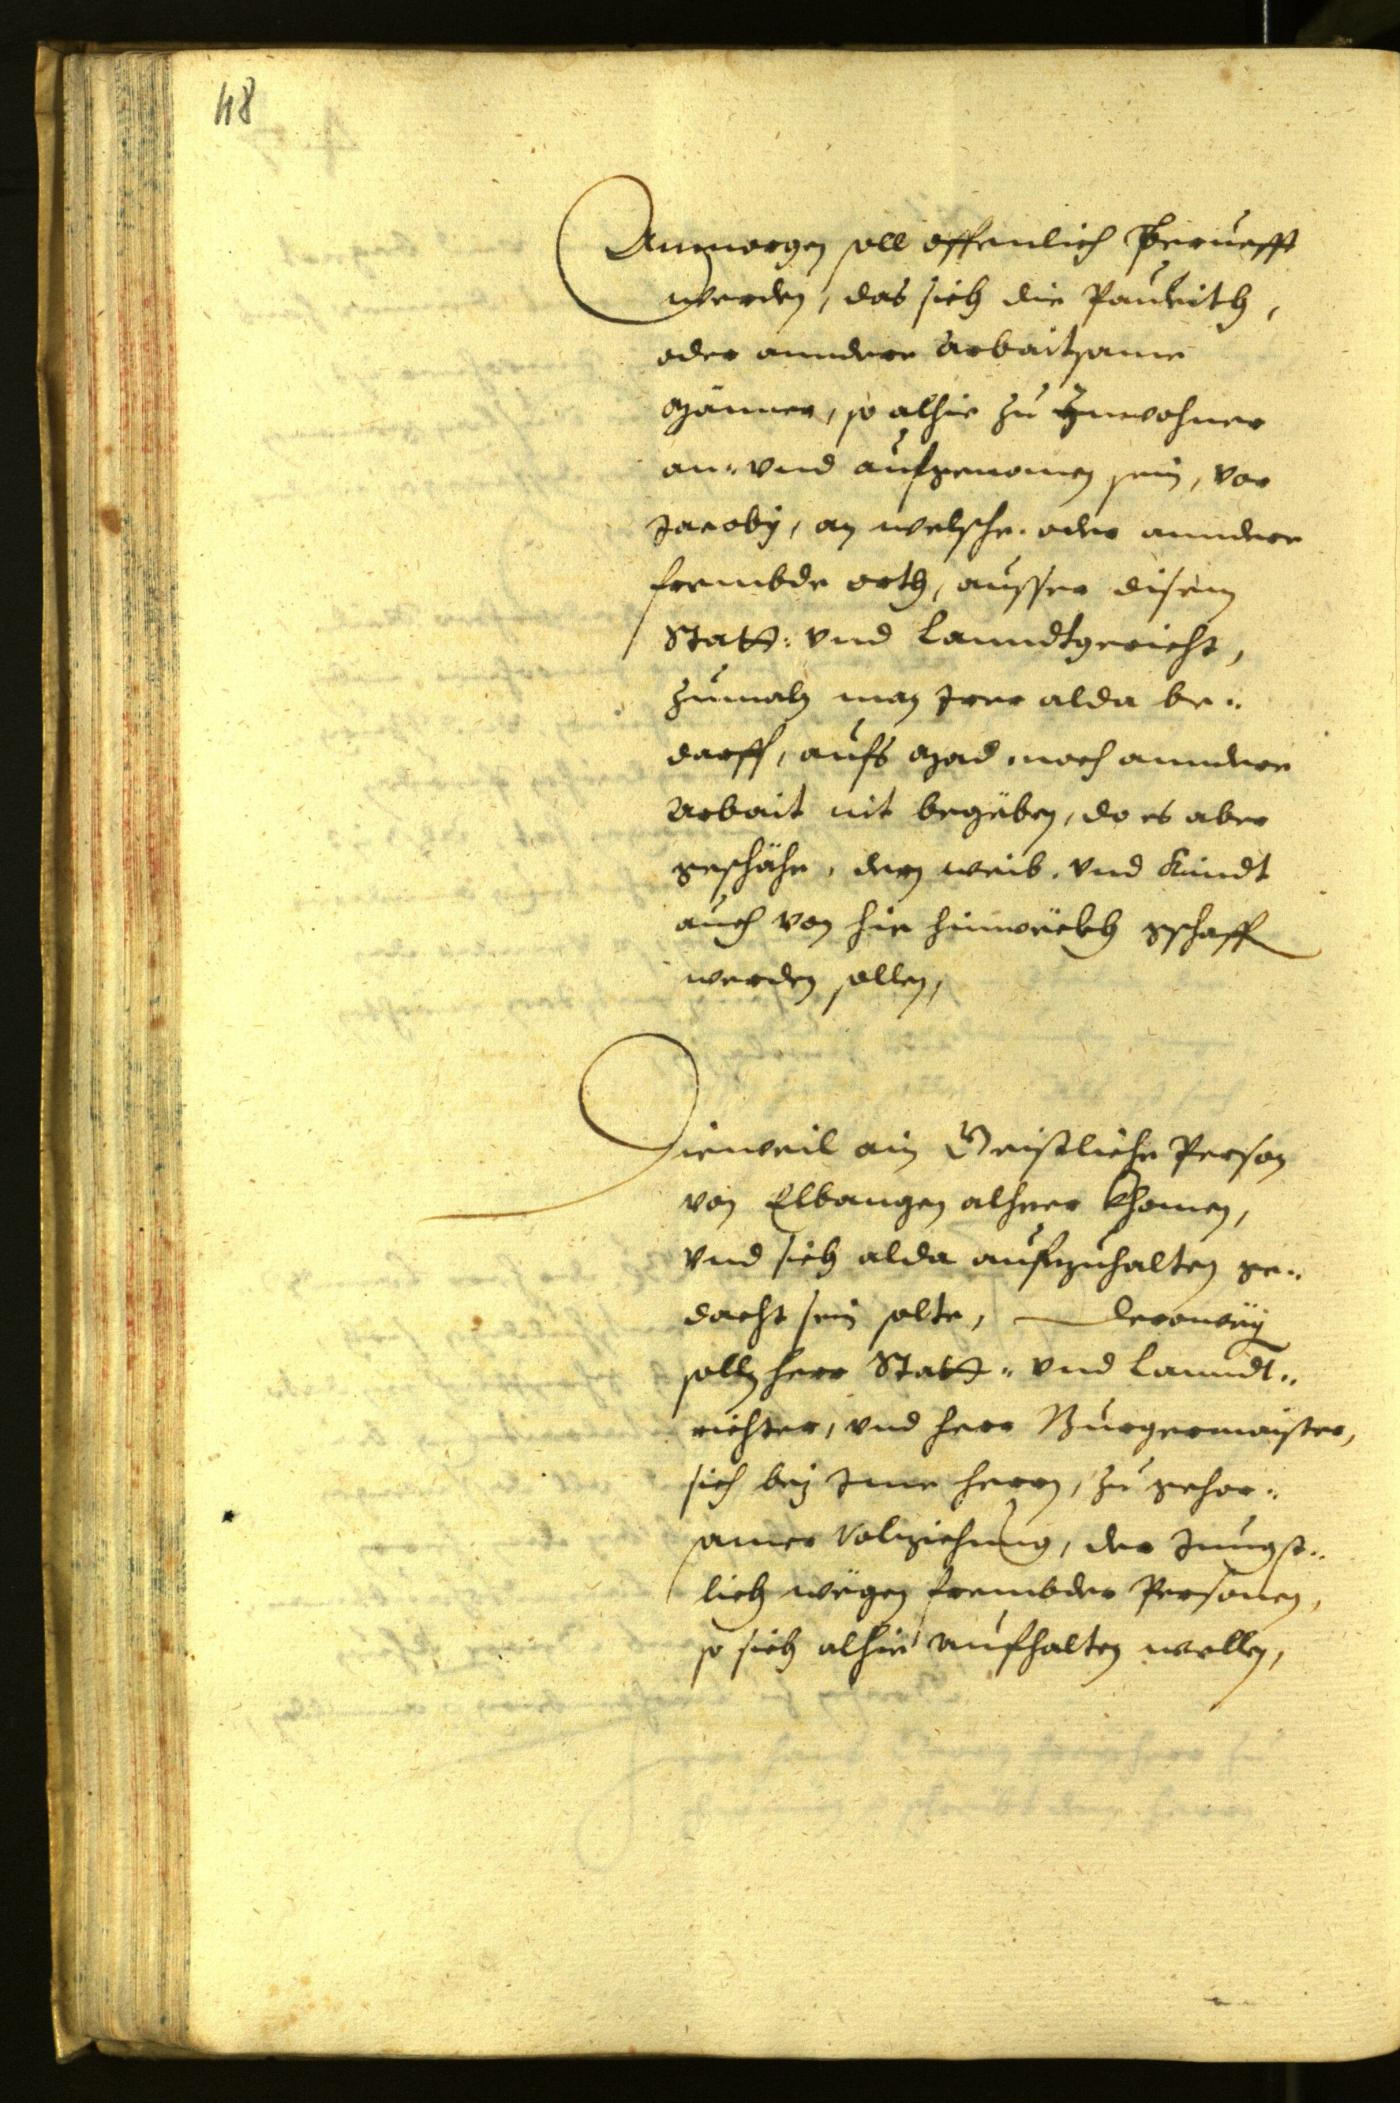 48
Anmorgen soll offenlich beruefft
werden, das sich die Pauleith,
oder anndere arbaitsame
Männer, so alhie zu Inwohner
an- vnd aufgenomen sein, vor
Jacoby, an welsche- oder anndere
frembde orth, ausser disem
Statt- vnd Lanndtgericht,
zumaln man Irer alda be-
darff, aufs Mad, noch anndere
Arbait nit begëben, do es aber
geschähe, dern weib- vnd Kindt
auch von hie hinwëckh gschafft
werden sollen,
Dieweil ain Geistliche Person
von Elbangen alheer khomen,
vnd sich alda aufzuhalten ge-
dacht sein solte,
sollen herr Statt- vnd Lanndt-
richter, vnd herr Burgermaister,
sich bey Ime herrn, zu gehor-
samer Volziehung, der Jungst-
lich wëgen frembder Personen,
so sich alhie aufhalten wellen,